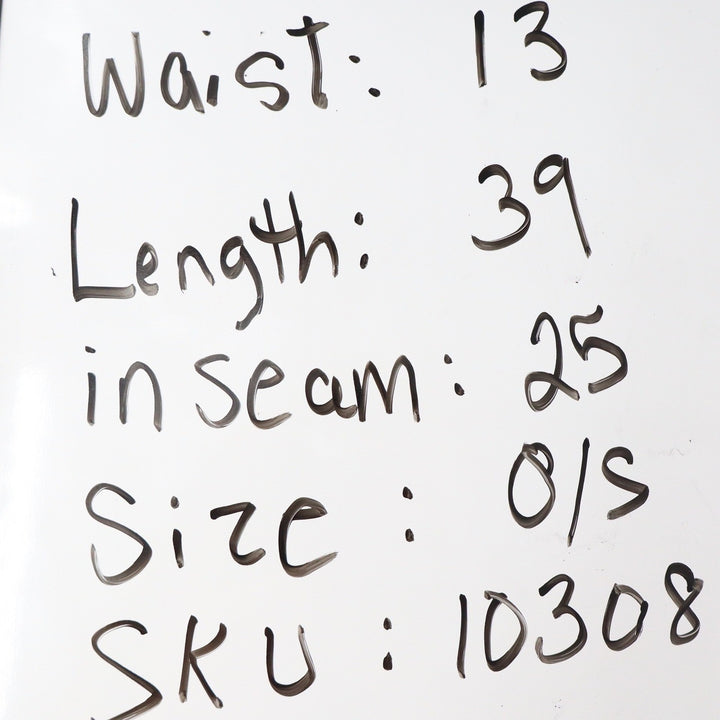 Waist: 13
Length: 39
inseam: 25
Size: O/S
SKU: 10308